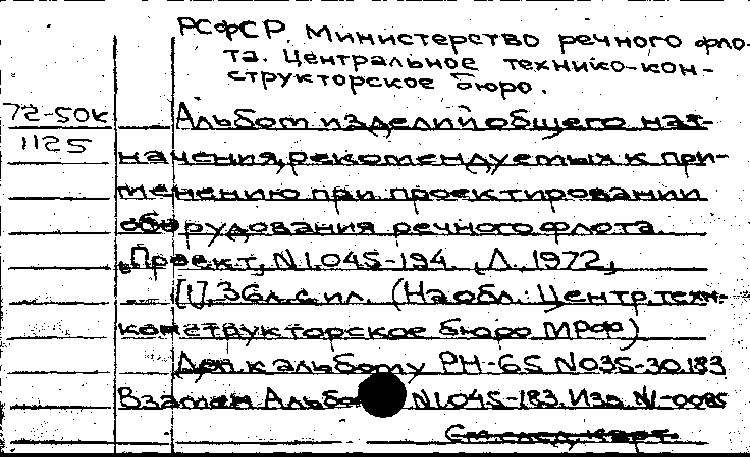 РСФСР. Министерство речного фло-
та. Центральное технико-кон-
структорское бюро.
72-50к
1125
Альбом изделий общего наз-
начения, рекомендуемых к при-
менению при проектировании
оборудования речного флота.
"Проект" N1.045-194. Л., 1972,
[1], 36 л. с ил. (На обл.: Центр. техн.-
конструкторское бюро МРФ)
Доп. к альбому РН-65 N035-30.183
Взамен Альбо N1.045-183. Изв. N1-0085
См. след. карт.